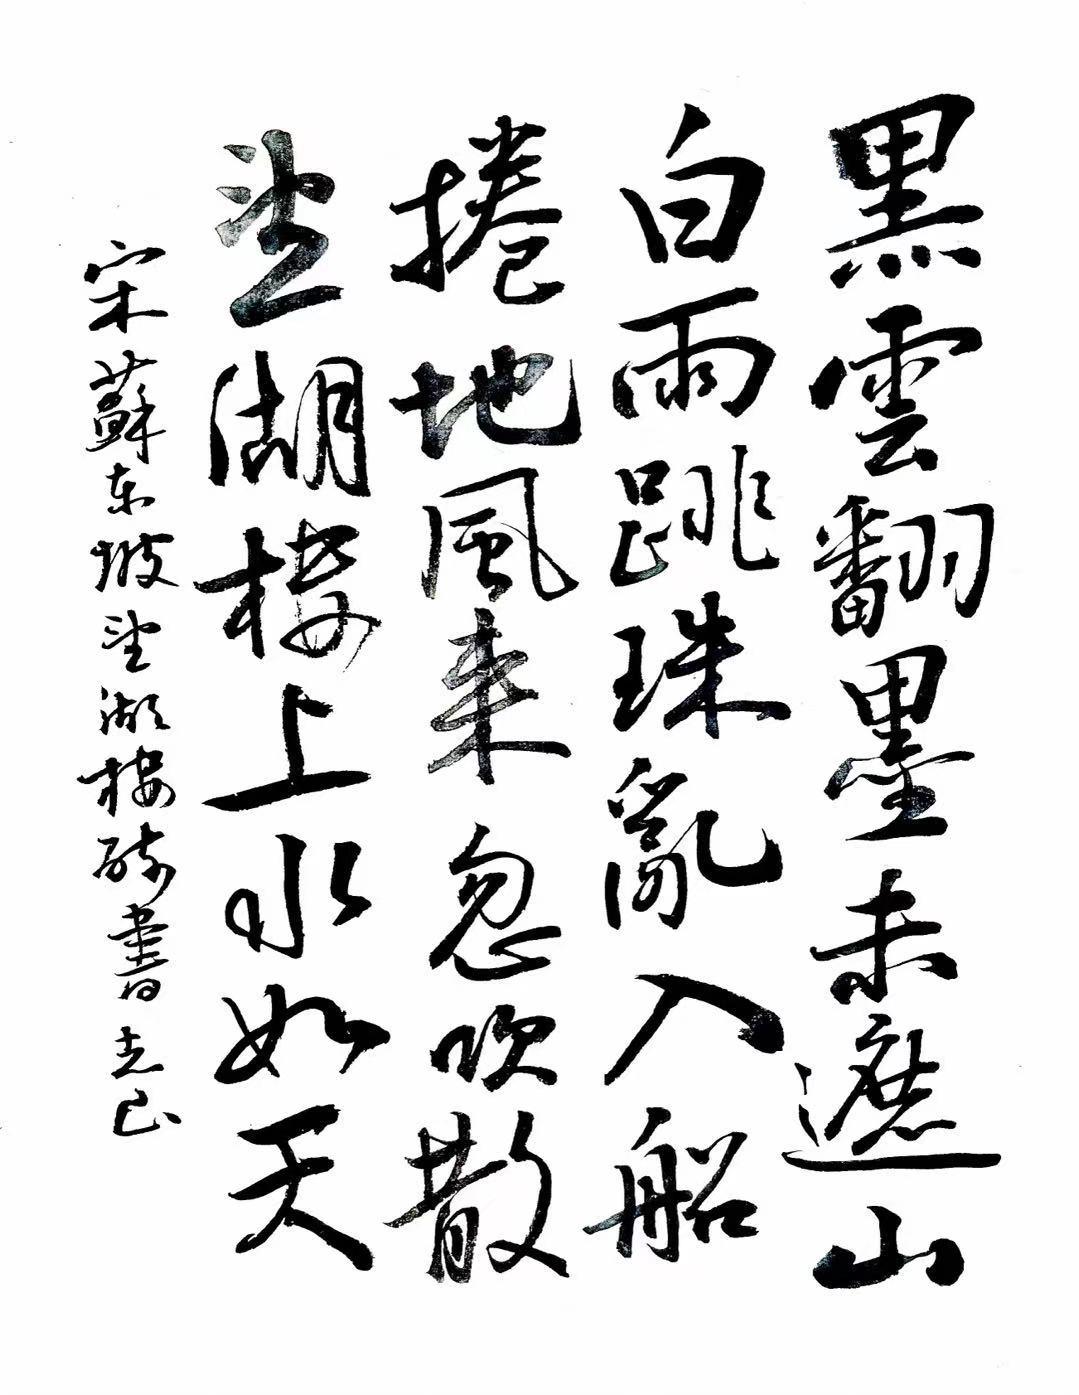 黑雲翻墨未遮山
白雨跳珠亂入船
捲地風来忽吹散
望湖楼上水如天
宋蘇东坡望湖楼醉書